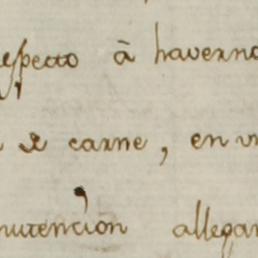 respecto à haverno
de carne, en vi
nutencion allegan